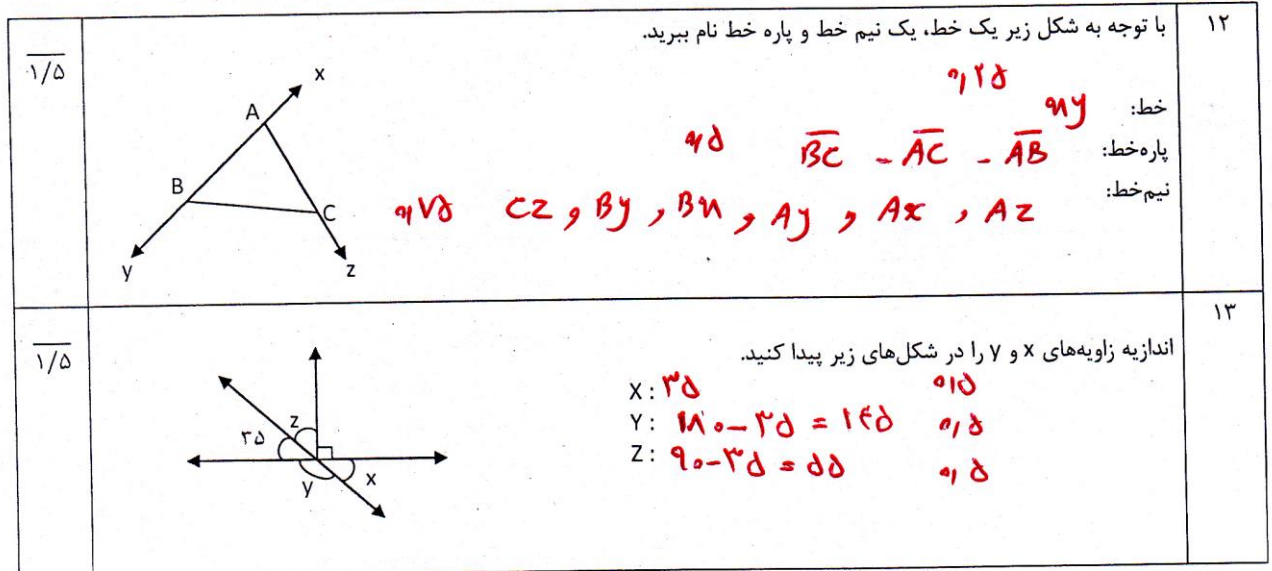 ۱۲
با توجه به شکل زیر یک خط، یک نیم خط و پاره خط نام ببرید.
۱/۵
۰/۲۵
خط: xy
پاره‌خط: AB - AC - BC ۰/۵
نیم‌خط: Az , Ax , Ay , Bx , By , Cz ۰/۷۵
x
A
B
C
y
z
۱۳
اندازیه زاویه‌های x و y را در شکل‌های زیر پیدا کنید.
۱/۵
X : ۳۵ ۰/۵
Y : ۱۸۰-۳۵ = ۱۴۵ ۰/۵
Z : ۹۰-۳۵ = ۵۵ ۰/۵
z
۳۵
y
x